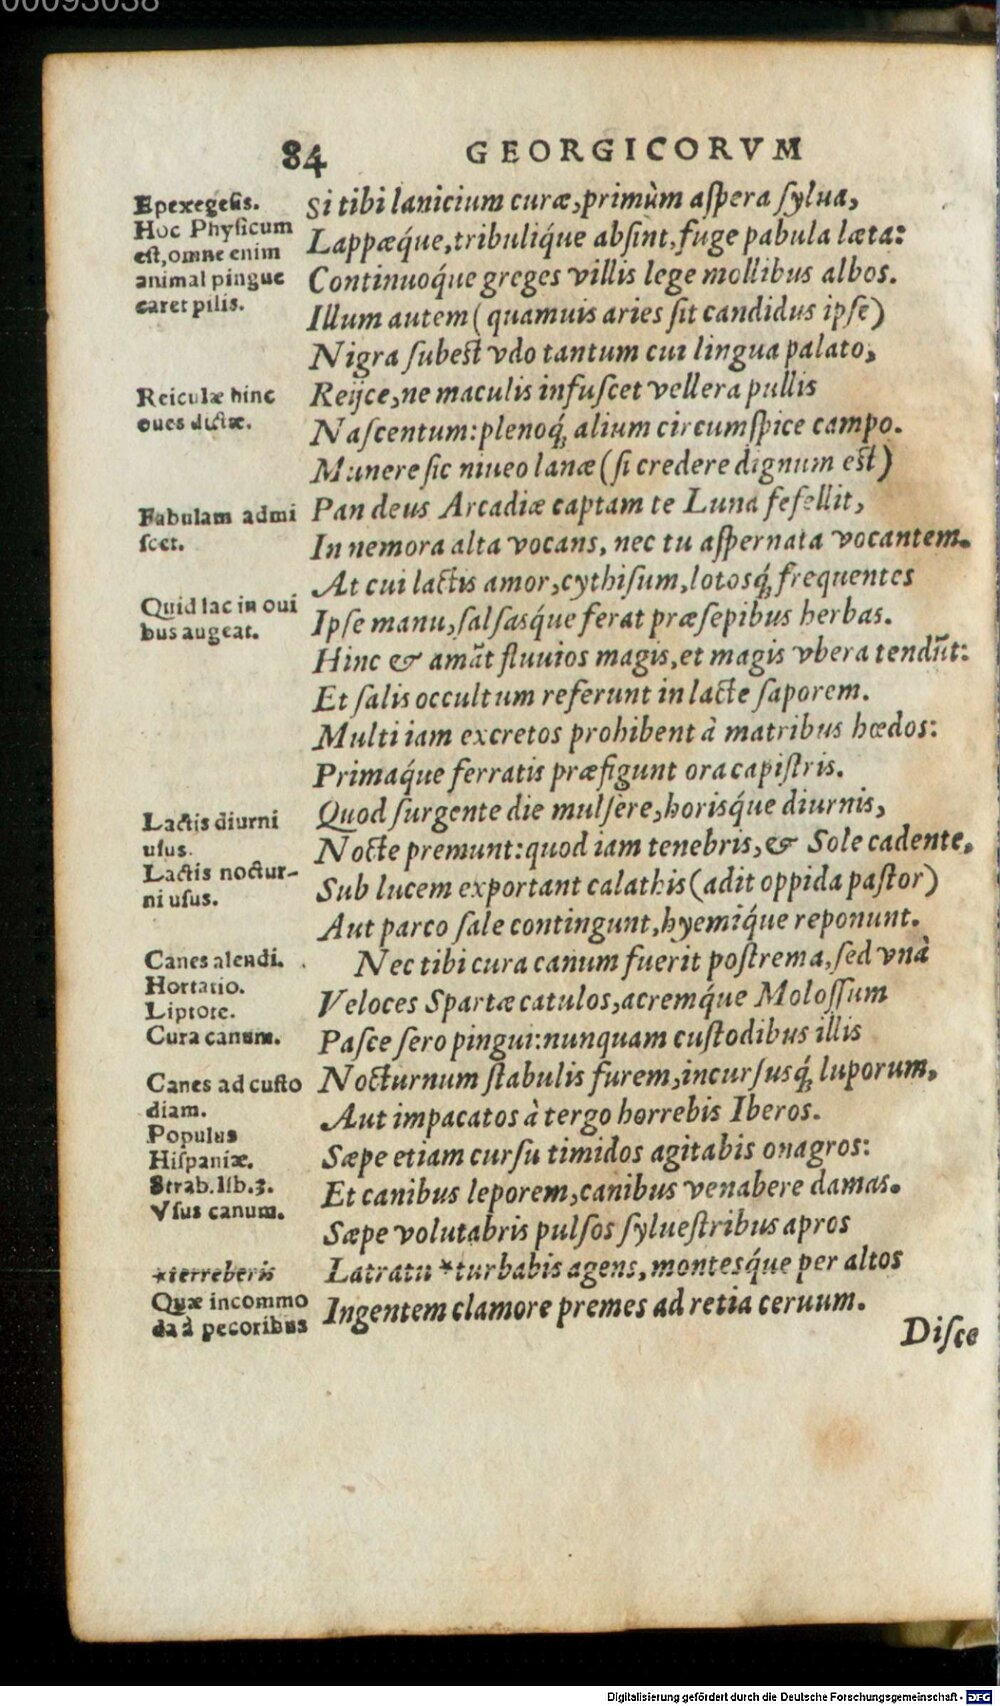 00093038
84 GEORGICORVM
Epexegesis.
Hoc Physicum
est, omne enim
animal pingue
caret pilis.
Reiculæ hinc
oues dictæ.
Fabulam admi
scet.
Quid lac in oui
bus augeat.
Lactis diurni
usus.
Lactis noctur-
ni usus.
Canes alendi.
Hortatio.
Liptote.
Cura canum.
Canes ad custo
diam.
Populus
Hispaniæ.
Strab. lib. 3.
Vsus canum.
*terreberis
Quæ incommo
da à pecoribus
Si tibi lanicium curæ, primùm aspera sylua,
Lappæq́ue, tribuliq́ue absint, fuge pabula læta:
Continuoq́ue greges villis lege mollibus albos.
Illum autem (quamuis aries sit candidus ipse)
Nigra subest vdo tantum cui lingua palato,
Reijce, ne maculis infuscet vellera pullis
Nascentum: plenoq́; alium circumspice campo.
Munere sic niueo lanæ (si credere dignum est)
Pan deus Arcadiæ captam te Luna fefellit,
In nemora alta vocans, nec tu aspernata vocantem.
At cui lactis amor, cythisum, lotosq́; frequentes
Ipse manu, salsasq́ue ferat præsepibus herbas.
Hinc & amãt fluuios magis, et magis vbera tendũt:
Et salis occultum referunt in lacte saporem.
Multi iam excretos prohibent à matribus hœdos:
Primaq́ue ferratis præfigunt ora capistris.
Quod surgente die mulsère, horisq́ue diurnis,
Nocte premunt: quod iam tenebris, & Sole cadente,
Sub lucem exportant calathis (adit oppida pastor)
Aut parco sale contingunt, hyemiq́ue reponunt.
Nec tibi cura canum fuerit postrema, sed vnà
Veloces Spartæ catulos, acremq́ue Molossum
Pasce sero pingui: nunquam custodibus illis
Nocturnum stabulis furem, incursusq́; luporum,
Aut impacatos à tergo horrebis Iberos.
Sæpe etiam cursu timidos agitabis onagros:
Et canibus leporem, canibus venabere damas.
Sæpe volutabris pulsos syluestribus apros
Latratu *turbabis agens, montesq́ue per altos
Ingentem clamore premes ad retia ceruum.
Disce
Digitalisierung gefördert durch die Deutsche Forschungsgemeinschaft - DFG